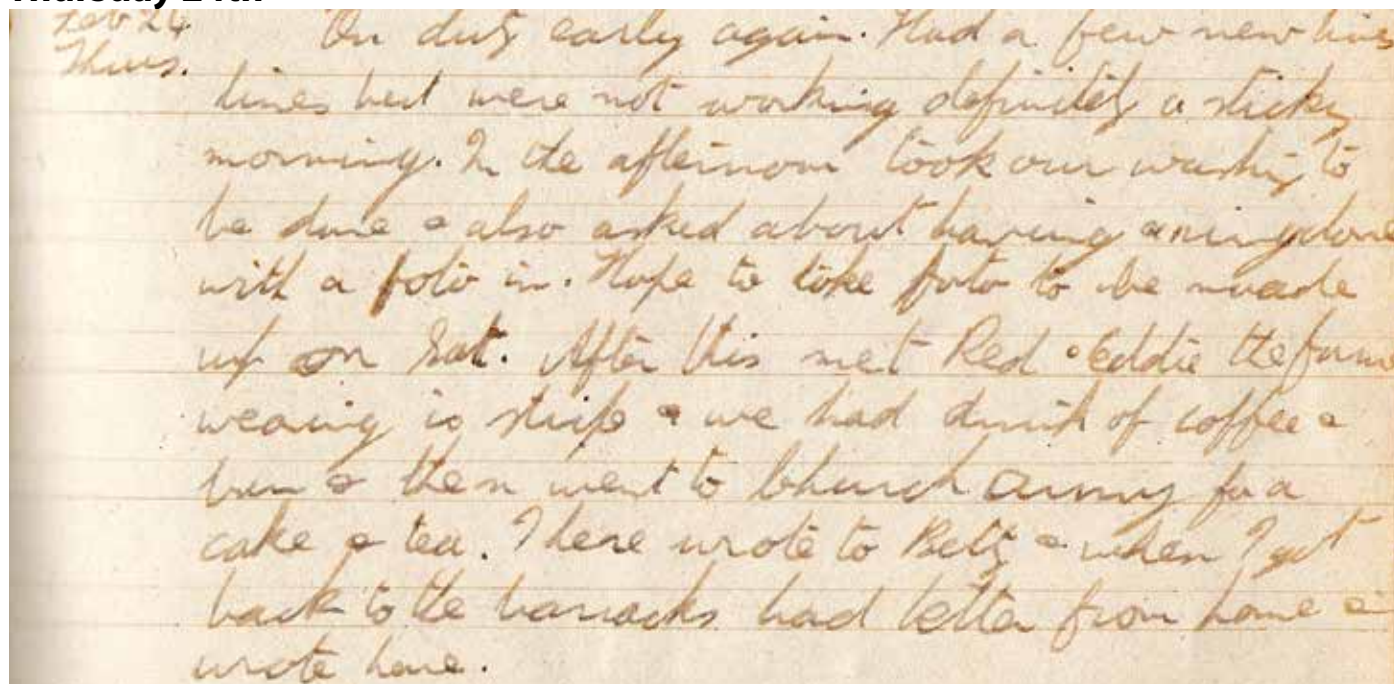 Thursday 24th
Feb 24 On duty early again. Had a few new lines
Thurs. lines but were not working definitely a sticky
morning. In the afternoon took our washing to
be done & also asked about having a ring done
with a foto in. Hope to take foto to be made
up on Sat. After this met Red & Eddie the
wearing is stripe & we had drink of coffee &
bun & then went to Church Army for a
cake & tea. There wrote to Betty & when I got
back to the barracks had letter from home &
wrote home.